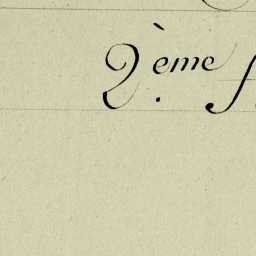 2.ème